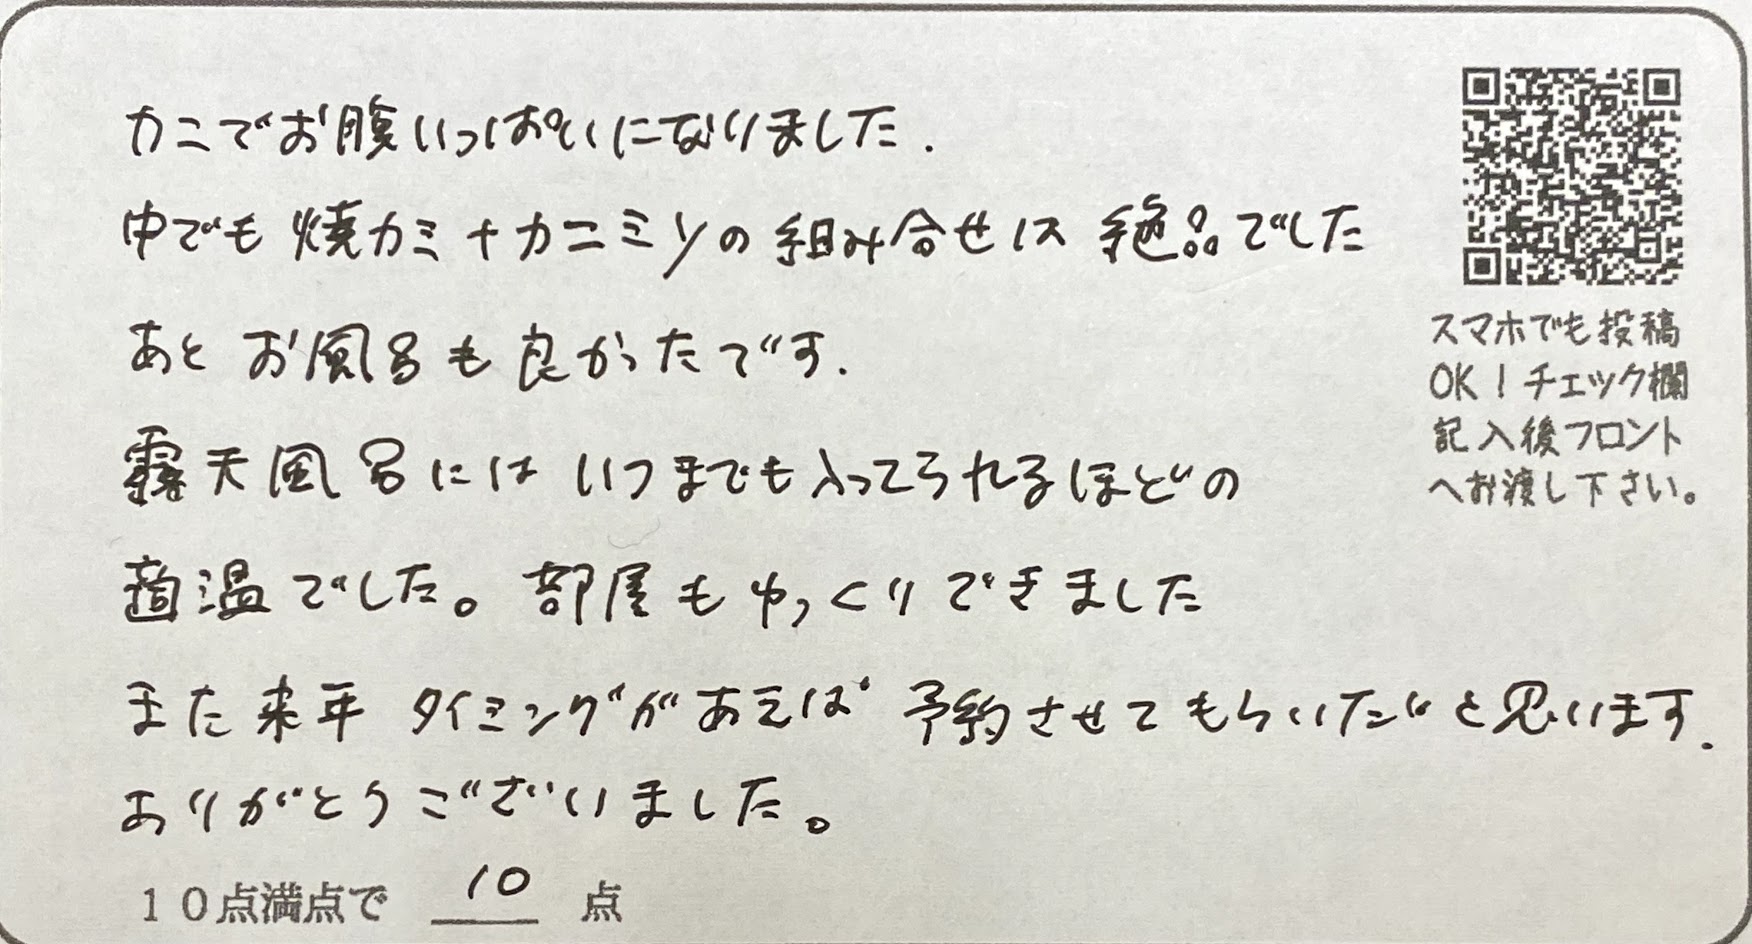 カニでお腹いっぱいになりました.
中でも 焼カミ+カニミソの組み合せは 絶品でした
あと お風呂も良かったです.
露天風呂には いつまでも入ってられるほどの
適温でした。部屋もゆっくりできました
また来年 タイミングがあえば 予約させてもらいただと思います.
ありがとうございました。
10点満点で 10 点
スマホでも投稿
OK!チェック欄
記入後フロント
へお渡し下さい。